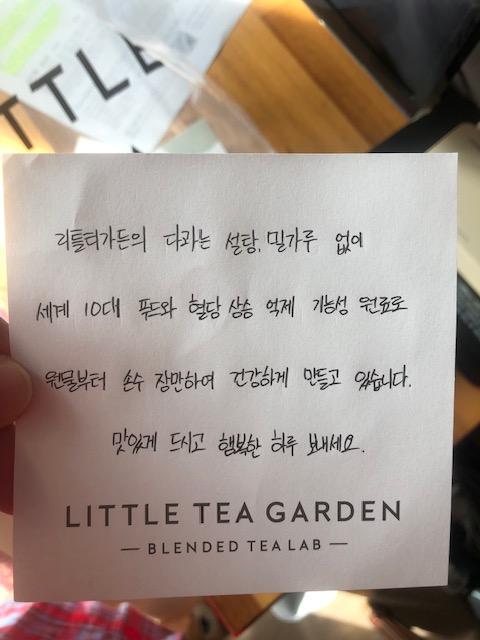 TTLE
리틀티가든의 다과는 설탕, 밀가루 없이
세계 10대 푸드와 혈당 상승 억제 기능성 원료로
원물부터 손수 장만하여 건강하게 만들고 있습니다.
맛있게 드시고 행복한 하루 보내세요.
LITTLE TEA GARDEN
— BLENDED TEA LAB —